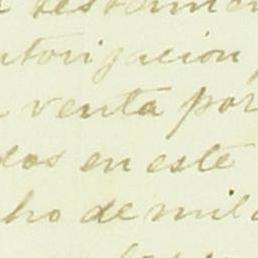 testamen
utorizacion
venta por
dos en este
ho de mil